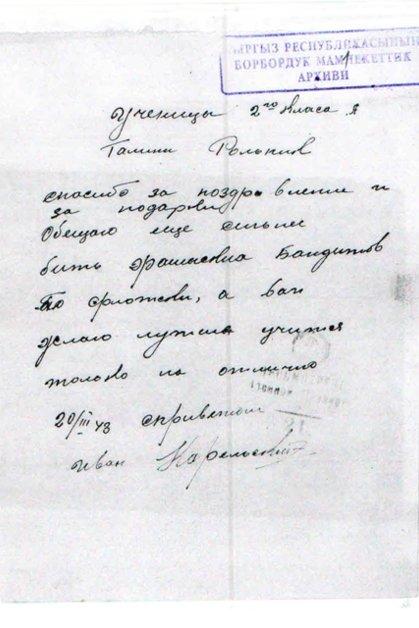 КЫРГЫЗ РЕСПУБЛИКАСЫНЫН
БОРБОРДУК МАМЛЕКЕТТИК
АРХИВИ
Ученицы 2го класа
Галини
спасибо за поздравление и
за подарки
Обещаю еще сильнее
бить фрашиских Бандитов
а вам
желаю лутше учитя
только на отлично
20/III 43 с приветом
Иван Карельский